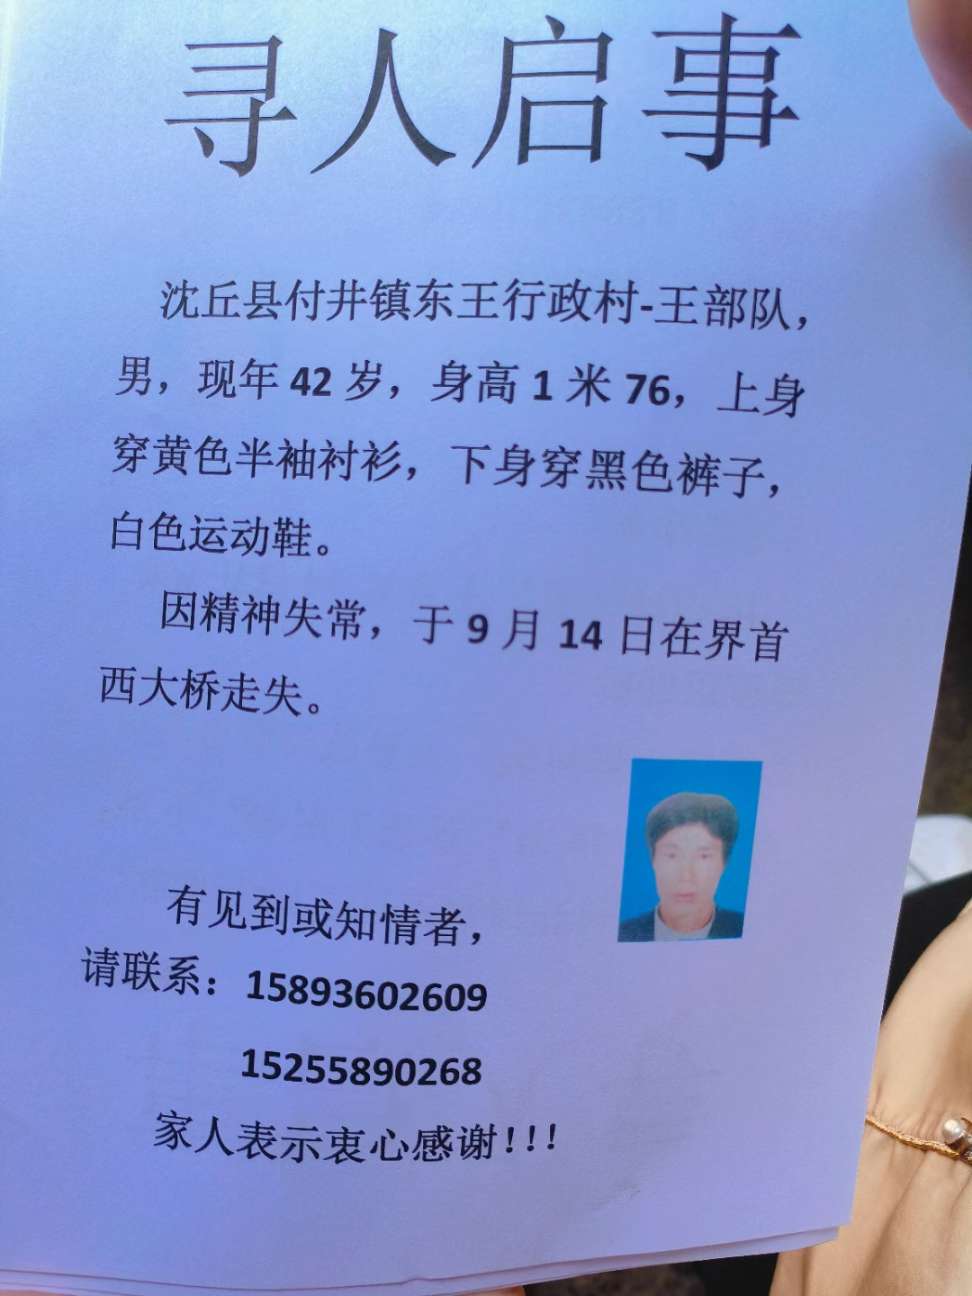 寻人启事
沈丘县付井镇东王行政村-王部队，
男，现年 42 岁，身高 1 米 76，上身
穿黄色半袖衬衫，下身穿黑色裤子，
白色运动鞋。
因精神失常，于 9 月 14 日在界首
西大桥走失。
有见到或知情者，
请联系：15893602609
15255890268
家人表示衷心感谢！！！